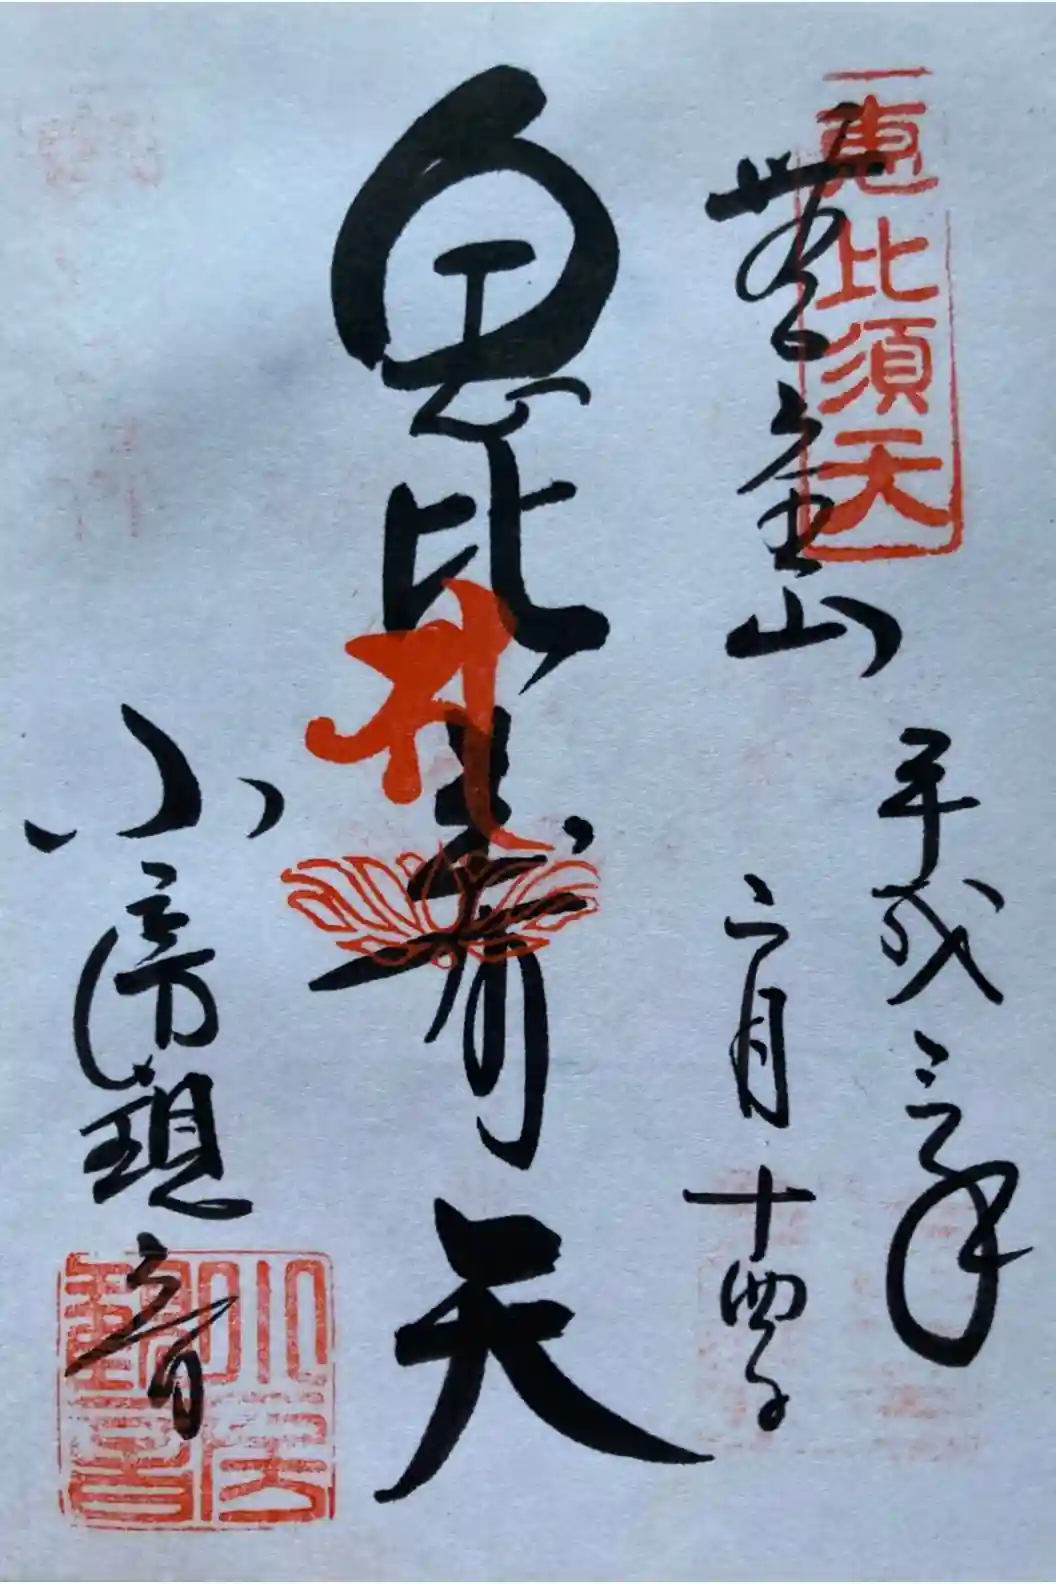 恵比須天
無量山
平成三年
二月十四日
恵比寿天
小房観音
小房観音